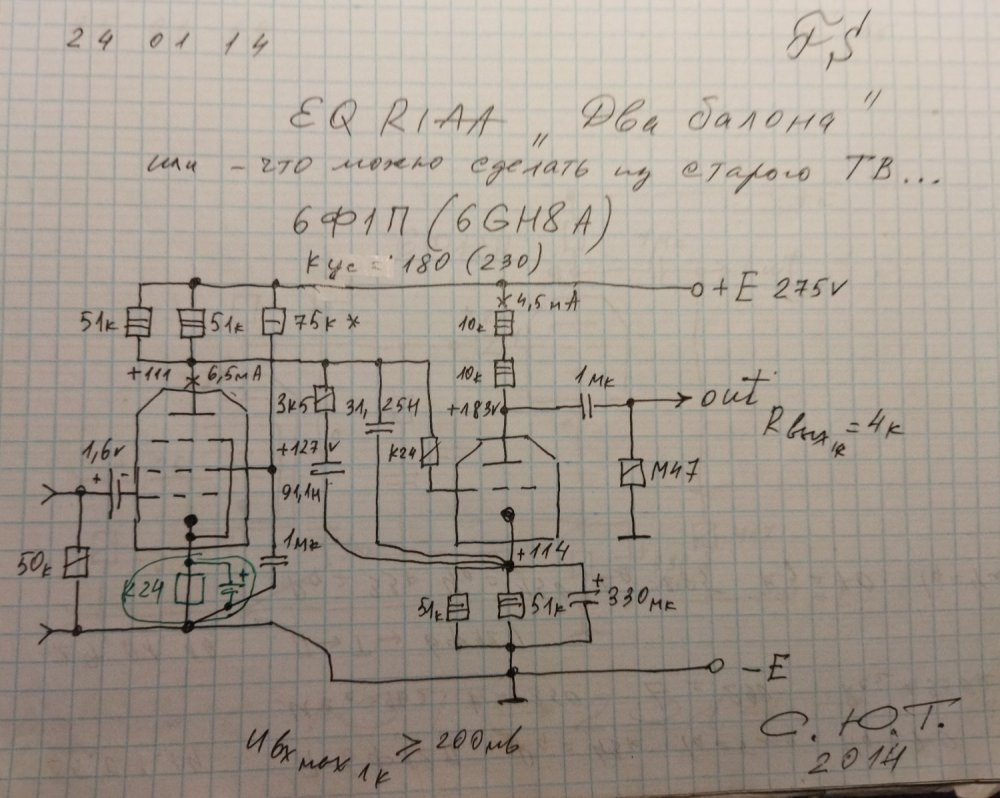 24 01 14
EQ RIAA „Два балона"
или - что можно сделать из старого ТВ...
6Ф1П (6GH8A)
Кус = 180 (230)
+E 275v
4,5mA
51к
51к
75к *
10к
10к
+111
6,5mA
3к5
31,25Н
к24
+183v
1мк
out
Rвых 1к = 4к
М47
1,6v
+
-
+127v
91,1н
50к
1мк
к24
+
+114
51к
51к
+
330мк
-E
Uвх max 1к ≥ 200мв
С.Ю.Т.
2014